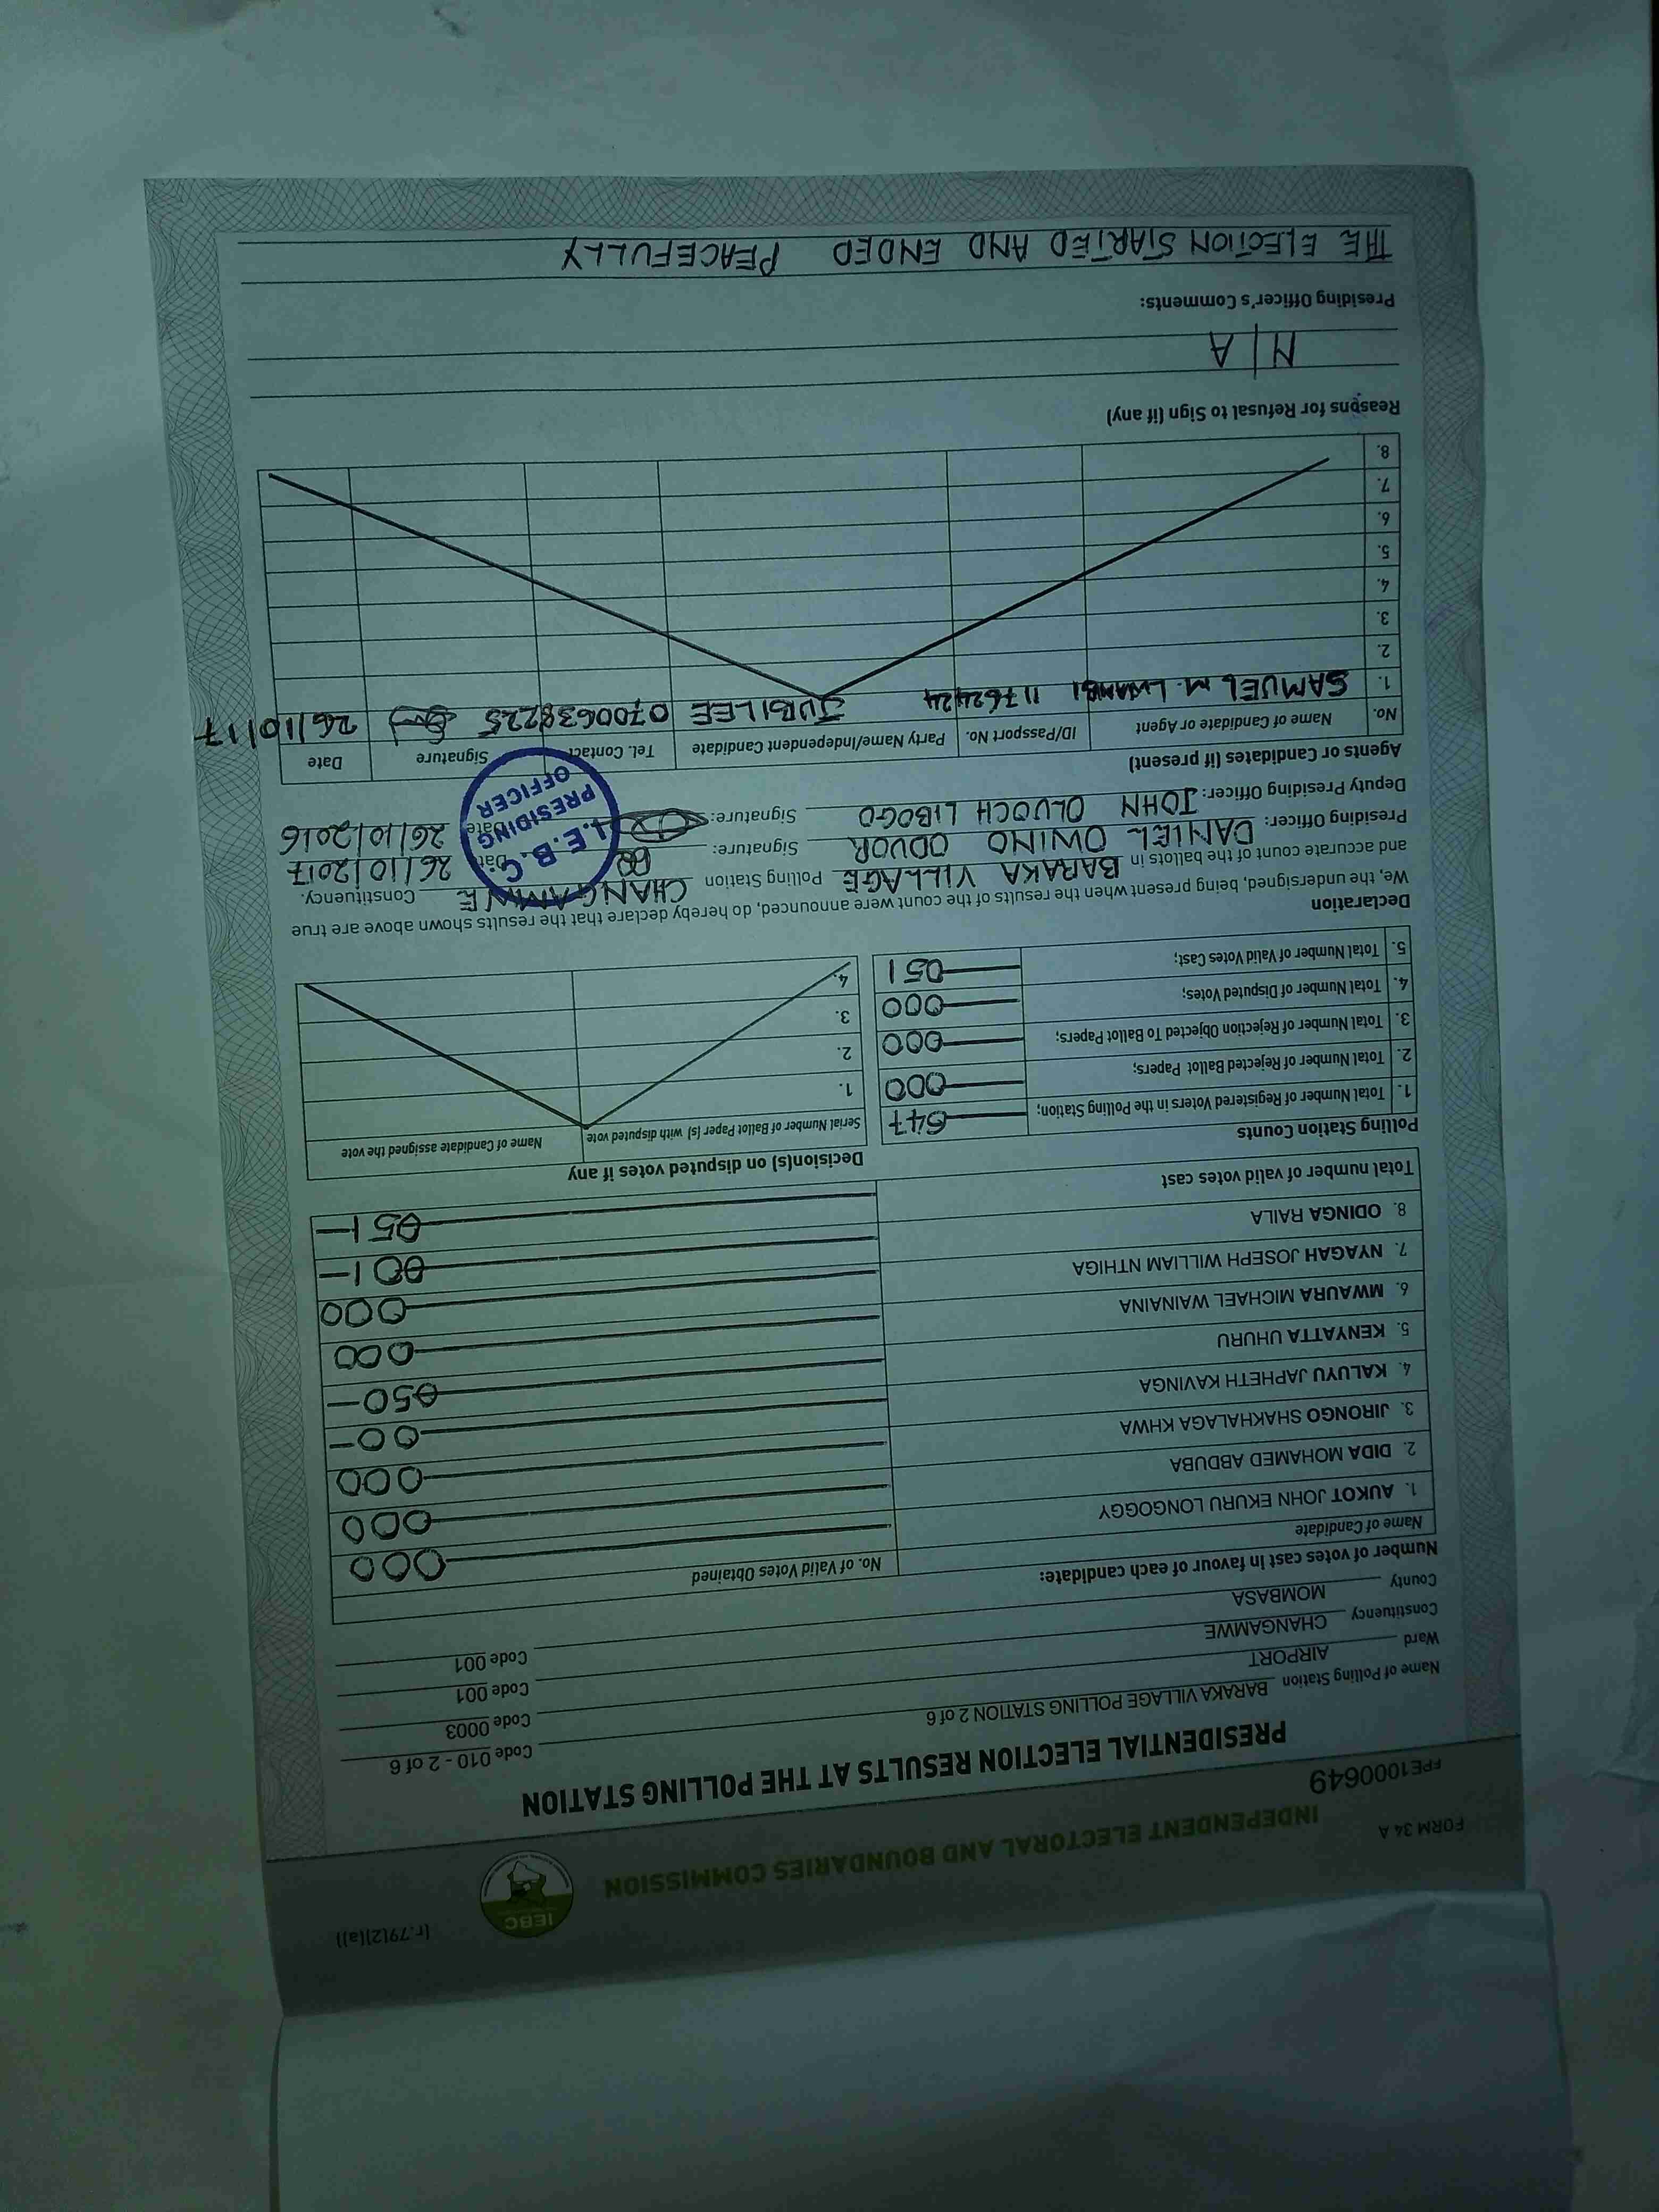 (r.79(2)(a))
IEBC
FORM 34 A
INDEPENDENT ELECTORAL AND BOUNDARIES COMMISSION
FPE1000649
PRESIDENTIAL ELECTION RESULTS AT THE POLLING STATION
Name of Polling Station BARAKA VILLAGE POLLING STATION 2 of 6 Code 010 - 2 of 6
Ward AIRPORT Code 0003
Constituency CHANGAMWE Code 001
County MOMBASA Code 001
Number of votes cast in favour of each candidate:
Name of Candidate No. of Valid Votes Obtained
1. AUKOT JOHN EKURU LONGOGGY 000
2. DIDA MOHAMED ABDUBA 000
3. JIRONGO SHAKHALAGA KHWA 000
4. KALUYU JAPHETH KAVINGA 00-
5. KENYATTA UHURU 050-
6. MWAURA MICHAEL WAINAINA 000
7. NYAGAH JOSEPH WILLIAM NTHIGA 000
8. ODINGA RAILA 001-
Total number of valid votes cast 051-
Polling Station Counts
1. Total Number of Registered Voters in the Polling Station; 647
2. Total Number of Rejected Ballot Papers; 000
3. Total Number of Rejection Objected To Ballot Papers; 000
4. Total Number of Disputed Votes; 000
5. Total Number of Valid Votes Cast; 051
Decision(s) on disputed votes if any
Serial Number of Ballot Paper (s) with disputed vote Name of Candidate assigned the vote
1.
2.
3.
4.
Declaration
We, the undersigned, being present when the results of the count were announced, do hereby declare that the results shown above are true
and accurate count of the ballots in BARAKA VILLAGE Polling Station CHANGAMWE Constituency.
Presiding Officer: DANIEL OWINO ODUOR Signature: Date 26/10/2017
Deputy Presiding Officer: JOHN OLUOCH LIBOGO Signature: Date 26/10/2016
I.E.B.C
PRESIDING
OFFICER
Agents or Candidates (if present)
No. Name of Candidate or Agent ID/Passport No. Party Name/Independent Candidate Tel. Contact Signature Date
1. SAMUEL M. LWAMBI 11762424 JUBILEE 0700638225 26/10/17
2.
3.
4.
5.
6.
7.
8.
Reasons for Refusal to Sign (if any)
N/A
Presiding Officer's Comments:
THE ELECTION STARTED AND ENDED PEACEFULLY